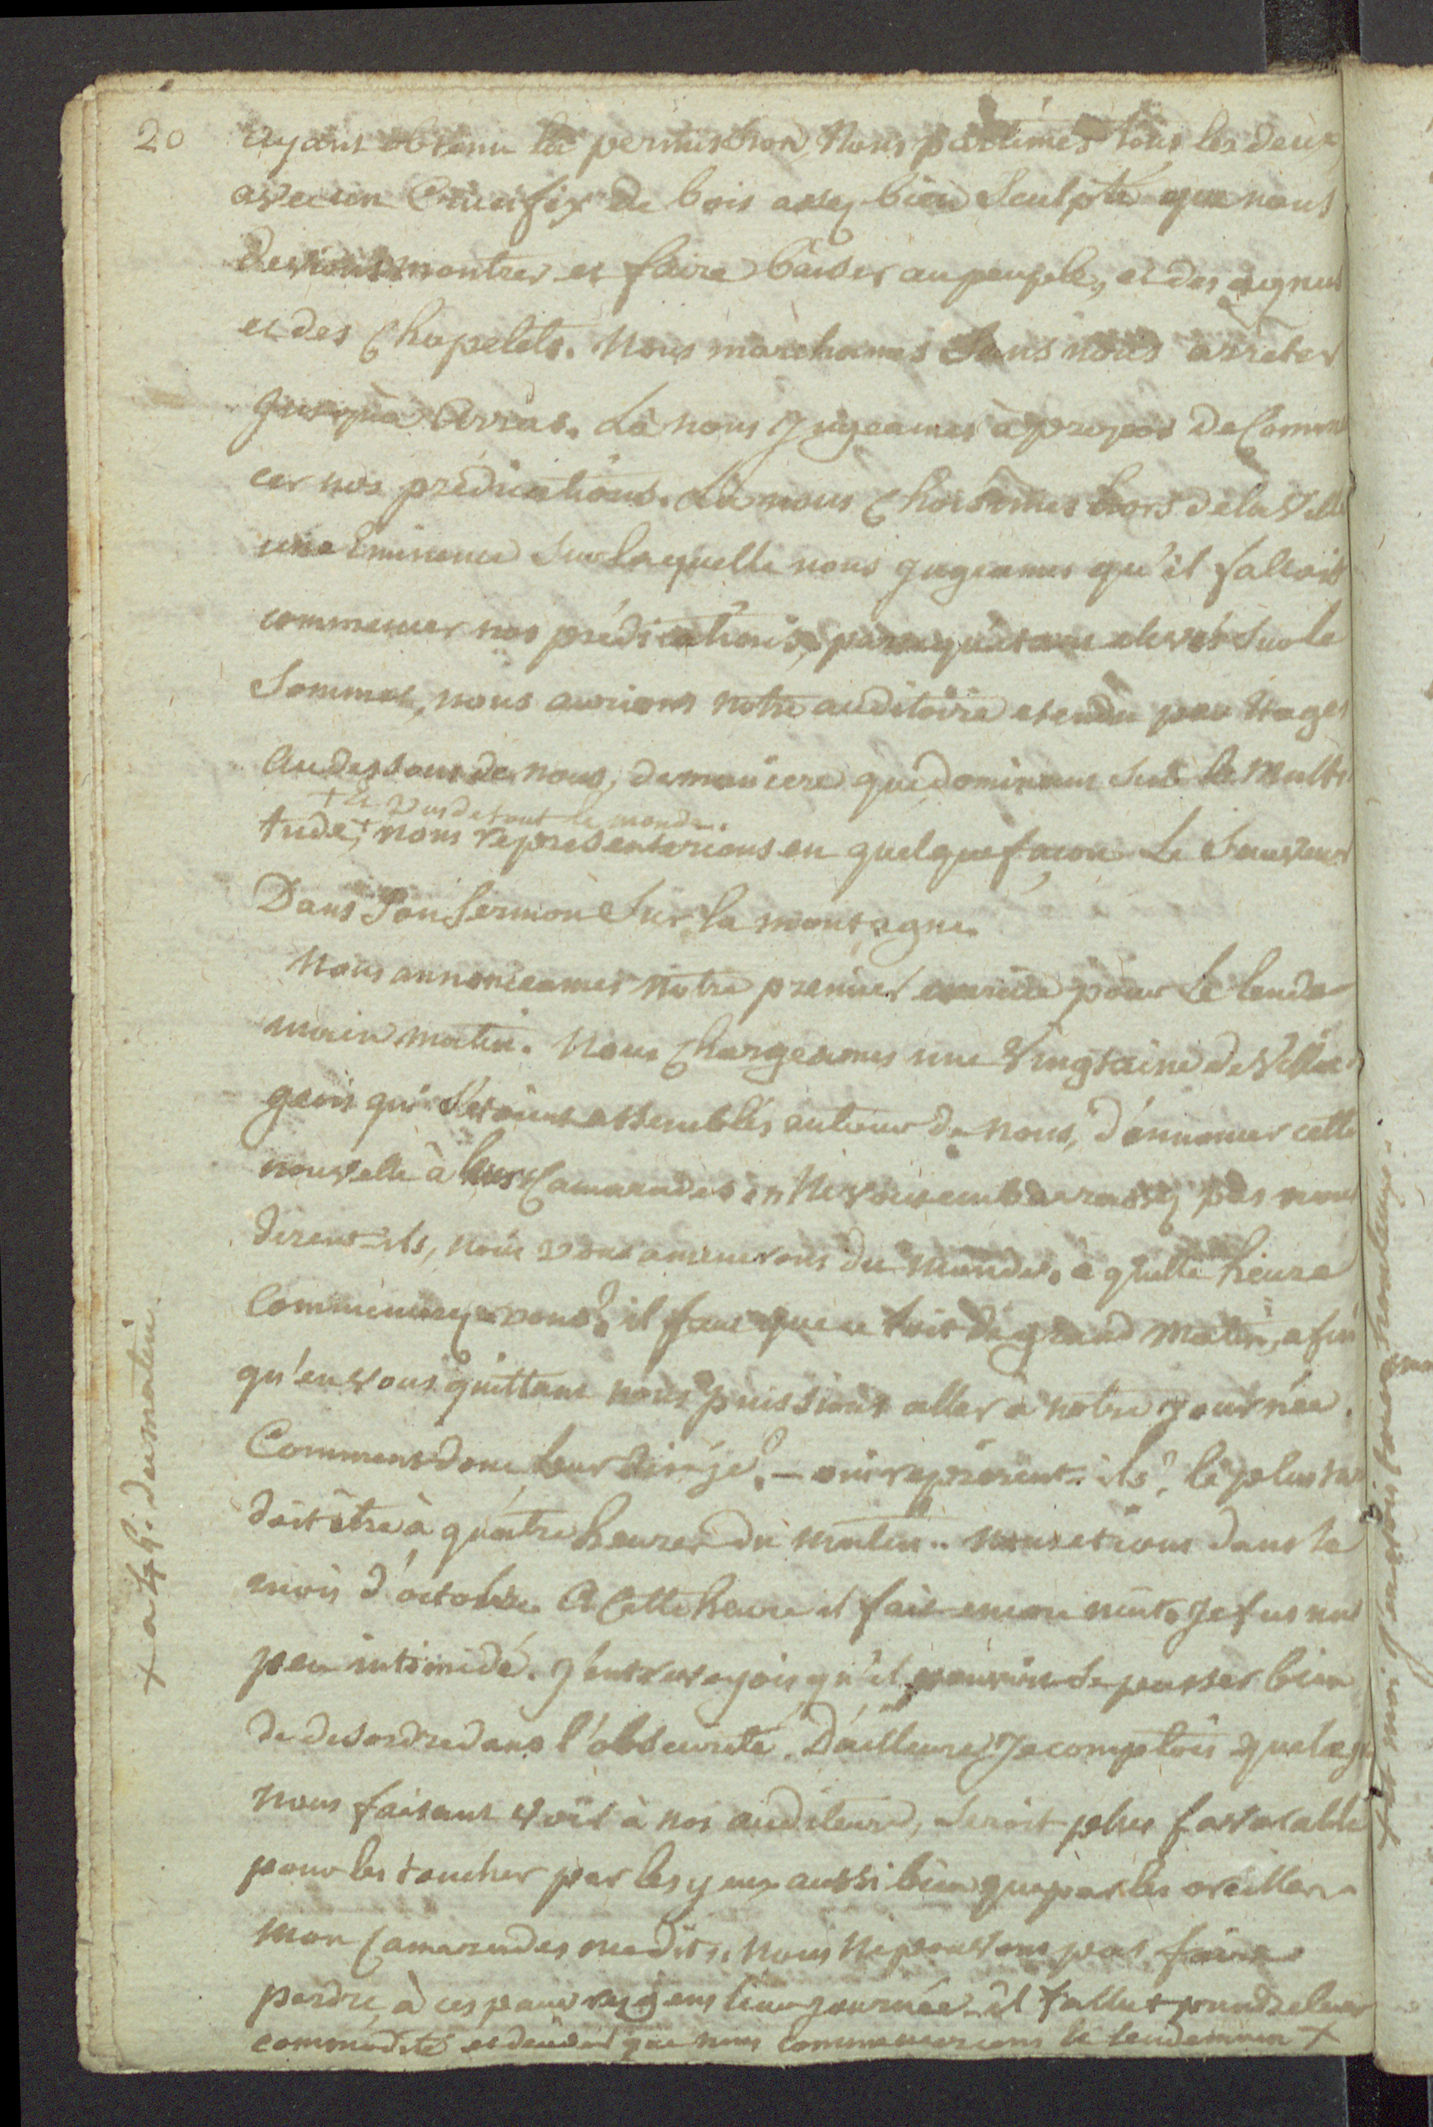 20
ayant obtenu la permission, Nous partîmes tous les deux
avec un Crucifix de bois assez bien Sculpté que nous
devions montrer et faire baiser au peuple, et des agnus
et des Chapelets. Nous marchames Sans nous arreter
jusqu'à Arras. Là nous Jugeames à propos de Commen
cer nos prédications. Là nous Choisîmes hors de la Ville
une Eminence Sur laquelle nous jugeames qu'il falloit
commencer nos prédications, parcequ'étant elevés Sur le
Sommet, nous aurions notre auditoire etendu par etages
Au dessous de nous, de maniere que dominant Sur la Multi
+ et vus de tout le monde.
tude,+ nous representerions en quelque façon Le Sauveur
Dans Son Sermon Sur la montagne.
Nous annonceames notre premier exercice pour Le lende
main matin. Nous Chargeames une Vingtaine de Villa
geois qui S'etoient assemblés autour de nous, d'annoncer cette
nouvelle à leurs Camarades. Ne vous embarrassez pas nous
dirent-ils, nous vous amenerons du monde. à quelle heure
Commencez-vous? il faut que ce soit de grand Matin, afin
qu'en vous quittant nous puissions aller à notre journée.
Comment donc leur dis-je? — oui reprirent-ils, le plus tard
doit être à quatre heures du matin.. nous etions dans le
mois d'octobre. A Cette heure il fait encore nuit. Je fus un
peu intimidé. J'entrevoyois qu'il pouvoit se passer bien
de desordre dans l'obscurité. D'ailleurs Je comptois que le jour
nous faisant voir à nos auditeurs, seroit plus favorable
pour les toucher par les yeux aussi bien que par les oreilles.
Mon Camarade me dit, Nous ne pouvons pas faire
perdre à ces pauvres gens leur journée. il fallut prendre leur
commodité et que nous commencerions le lendemain +
+ à 4 h. du matin.